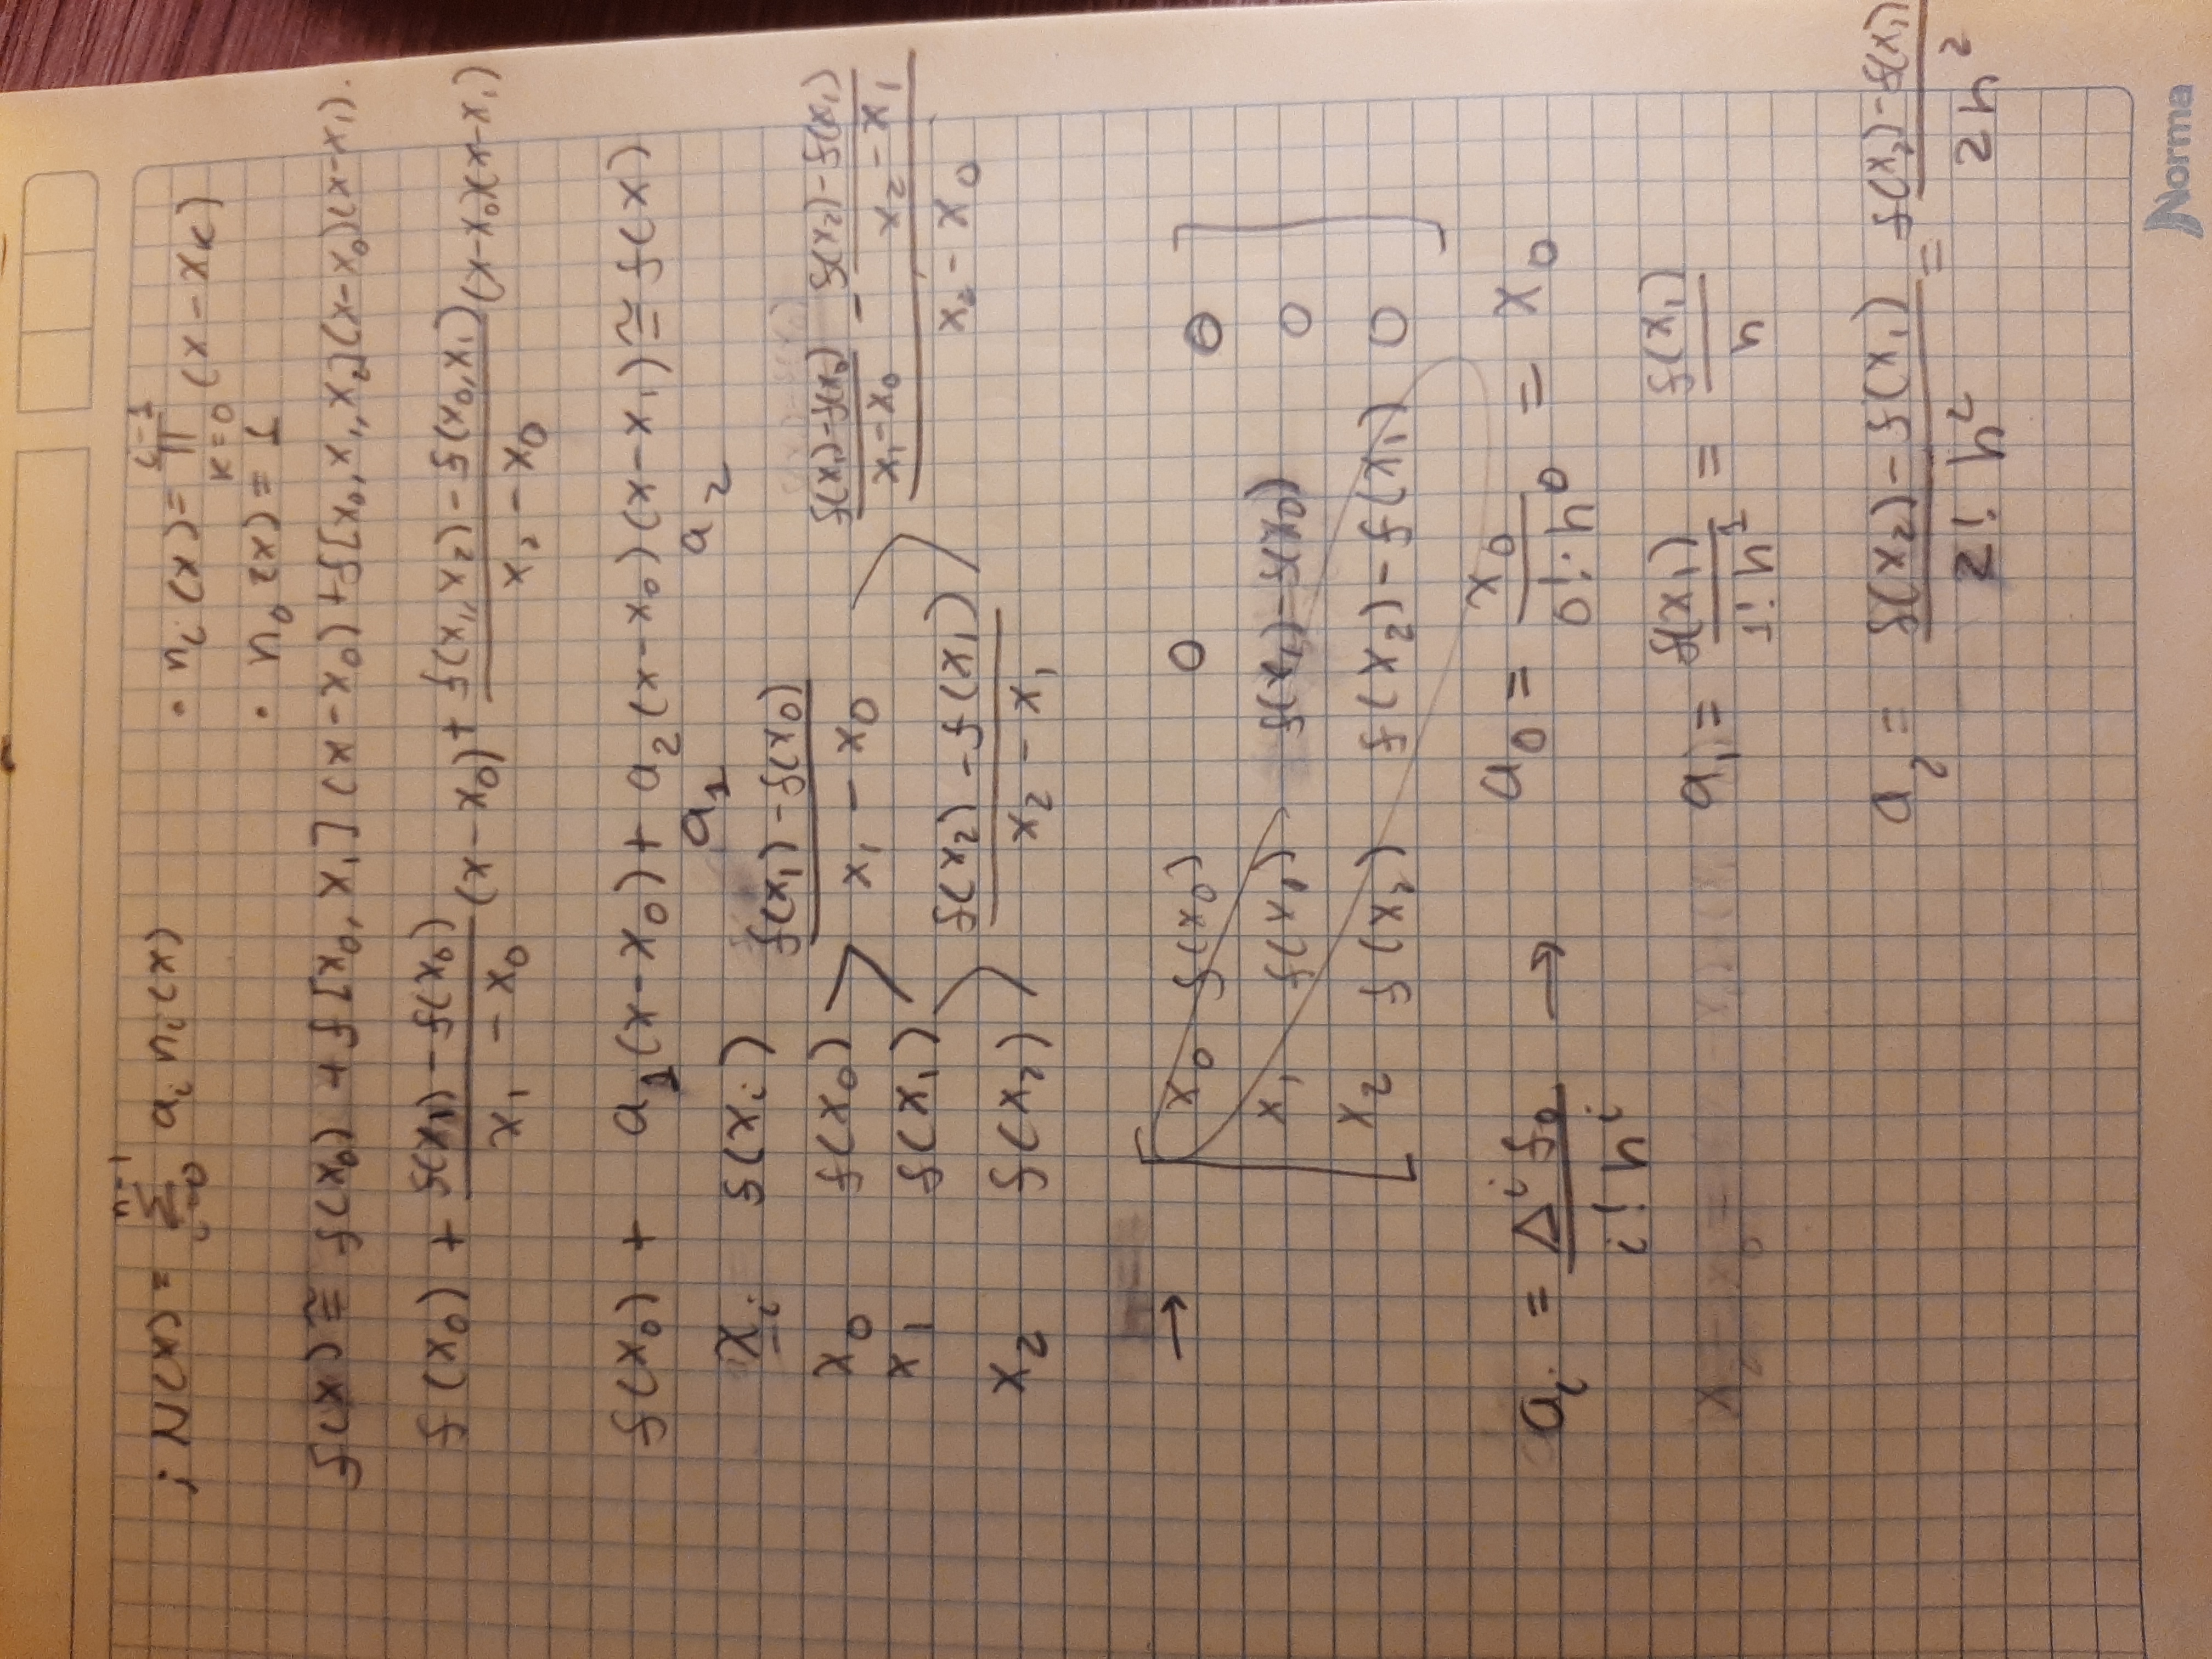 ¡ N(x) = Σ_{i=0}^{n-1} a_i n_i(x)    • n_i(x) = Π_{k=0}^{i-1} (x - x_k)
• n_0(x) = 1
f(x) ≅ f(x_0) + f[x_0, x_1] (x - x_0) + f[x_0, x_1, x_2](x - x_0)(x - x_1).
f(x_0) + \frac{f(x_1) - f(x_0)}{x_1 - x_0} (x - x_0) + \frac{f(x_1, x_2) - f(x_0, x_1)}{x_2 - x_0} (x - x_0)(x - x_1)
f(x_0) + a_1(x - x_0) + a_2(x - x_0)(x - x_1) ≅ f(x)
x_i    f(x_i)    a_1    a_2
x_0    f(x_0)    \frac{f(x_1) - f(x_0)}{x_1 - x_0}
x_1    f(x_1)    \frac{\frac{f(x_1) - f(x_0)}{x_1 - x_0} - \frac{f(x_2) - f(x_1)}{x_2 - x_1}}{x_2 - x_0}
x_2    f(x_2)    \frac{f(x_2) - f(x_1)}{x_2 - x_1}
→ [ x_0    f(x_0)    0    0
x_1    f(x_1)    f(x_1) - f(x_0)    0
x_2    f(x_2)    f(x_2) - f(x_1)    0 ]
a_i = \frac{Δ^i f_0}{i! h^i} → a_0 = \frac{x_0}{0! · h^0} = x_0
a_1 = \frac{f(x_1)}{1! h^1} = \frac{f(x_1)}{h}
a_2 = \frac{f(x_2) - f(x_1)}{2! h^2} = \frac{f(x_2) - f(x_1)}{2h^2}
Norma